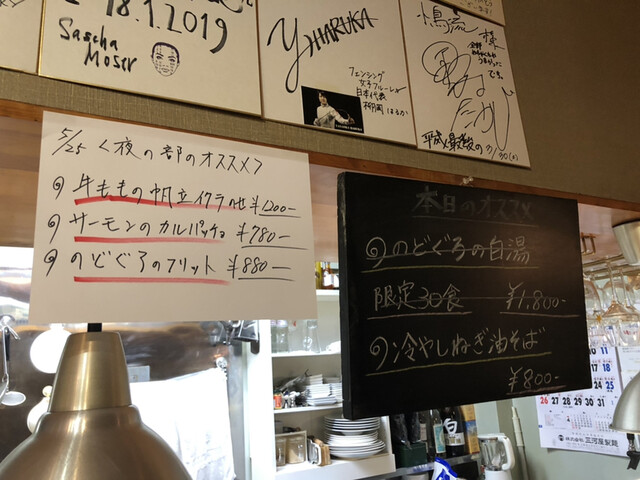 18.1.2019
Sascha
Moser
Y HARUKA
フェンシング
女子フルーレ
日本代表
柳岡はるか
様
平成最後の
5/25 <夜の部のオススメ>
牛ももの帆立イクラのせ ¥1200-
サーモンのカルパッチョ ¥780-
のどぐろのフリット ¥880-
本日のオススメ
のどぐろの白湯
限定30食 ¥1,800-
冷やしねぎ油そば
¥800-
10 11
17 18
24 25
26 27 28 29 30 31
三河屋製麺
白